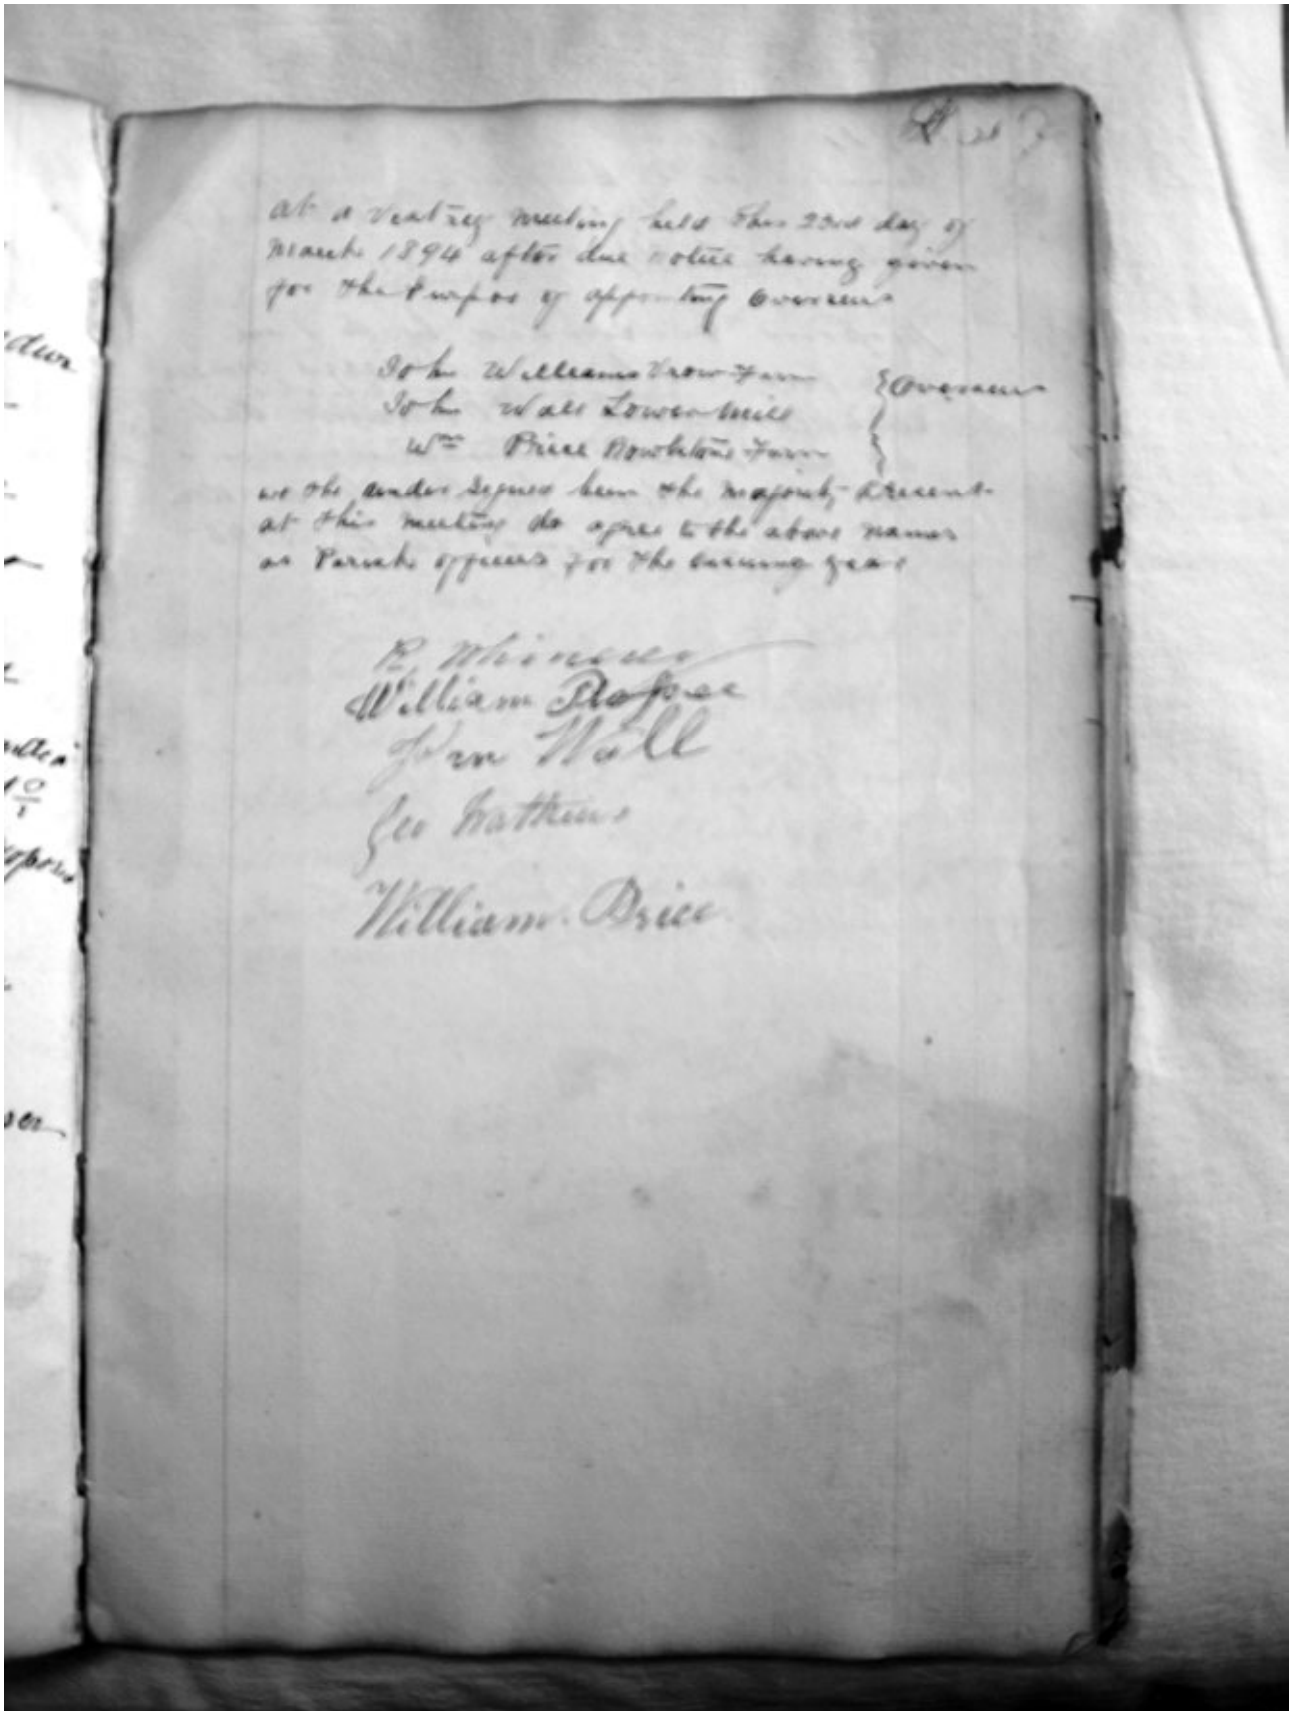 at a Vestrey meeting held this 23rd day of
March 1894 after due notice having given
for the Purpos of appointing Overseers
John Williams Farm
John Wall Lower Mill
Wm Price Rowlstone Farm
} Overseers
we the under Signed been the majority Present
at this meeting do agree to the above names
as Parish officers for the ensuing year
R.
William Prosser
John Wall
Geo Watkins
William Price